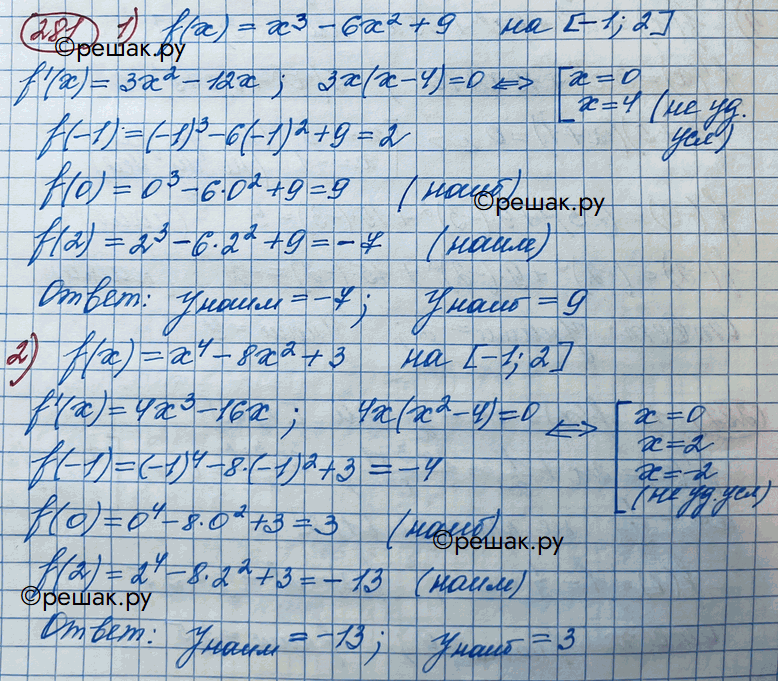 281 1) f(x) = x³ - 6x² + 9 на [-1; 2]
©решак.ру
f'(x) = 3x² - 12x ; 3x(x-4)=0 ⇔ [ x = 0
x = 4 (не уд.
усл)
f(-1) = (-1)³ - 6(-1)² + 9 = 2
f(0) = 0³ - 6·0² + 9 = 9 (наиб)
©решак.ру
f(2) = 2³ - 6·2² + 9 = -7 (наим)
Ответ: yнаим = -7 ; yнаиб = 9
2) f(x) = x⁴ - 8x² + 3 на [-1; 2]
f'(x) = 4x³ - 16x ; 4x(x² - 4) = 0 ⇔ [ x = 0
x = 2
x = -2
(не уд. усл)
f(-1) = (-1)⁴ - 8·(-1)² + 3 = -4
f(0) = 0⁴ - 8·0² + 3 = 3 (наиб)
©решак.ру
f(2) = 2⁴ - 8·2² + 3 = -13 (наим)
©решак.ру
Ответ: yнаим = -13 ; yнаиб = 3